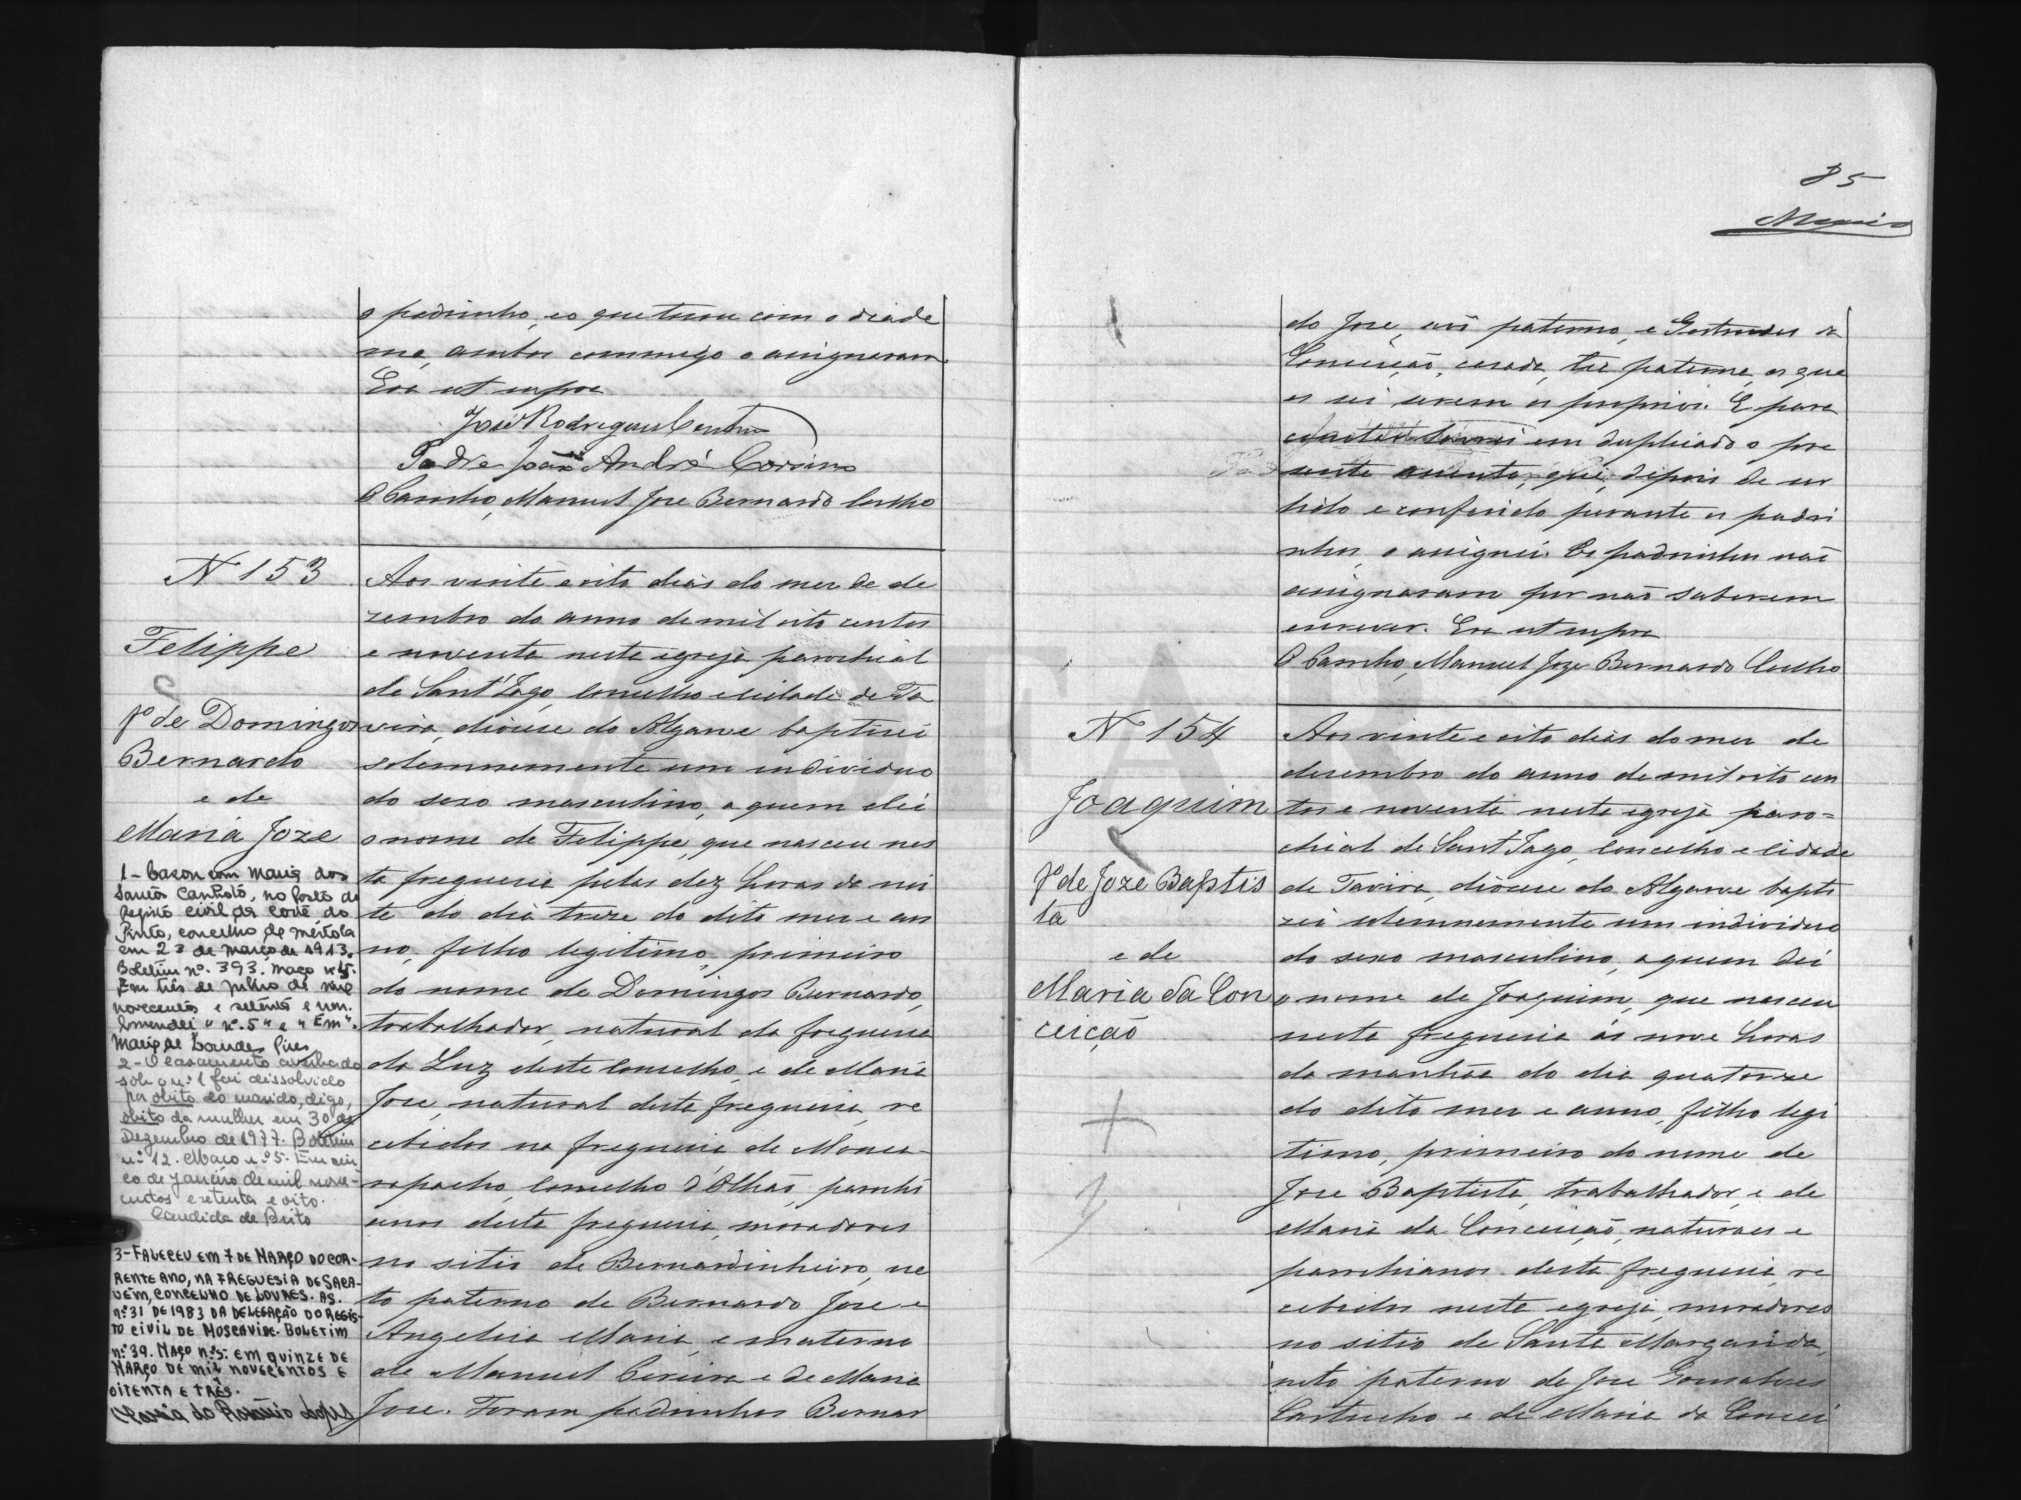 o padrinho, e o que tocou com o diade
ma, ambos commigo o assignaram
Era ut supra
José Rodrigues Centeno
Padre João André Corsino
O Parocho, Manuel Joze Bernardo Coelho
N 153
Felippe
fº de Domingos
Bernardo
e de
Maria Joze
1- Casou com Maria dos
Santos Canhoto, no Posto do
Registo civil da Corte do
Pinto, concelho de Mértola
em 23 de março de 1913.
Boletim nº. 393. Maço nº 5.
Em três de julho de mil
novecentos e setenta e um.
Emendei "nº. 5" e "Em".
Maria de Lourdes Pires
2- O casamento averbado
sob o nº 1 foi dissolvido
por obito do marido, digo,
obito da mulher em 30 de
Dezembro de 1977. Boletim
nº 12. Maço nº 5. Em cin
co de Janeiro de mil nove-
centos e setenta e oito.
Candida de Brito
3- FALECEU EM 7 DE MARÇO DO COR-
RENTE ANO, NA FREGUESIA DE SACA-
VÉM, CONCELHO DE LOURES. AS.
nº 31 DE 1983 DA DELEGAÇÃO DO REGIS-
TO CIVIL DE MOSCAVIDE. BOLETIM
nº 39. MAÇO nº 5. EM QUINZE DE
MARÇO DE MIL NOVECENTOS E
OITENTA E TRÊS.
Maria do Rosário Lopes
Aos vinte e oito dias do mez de de
zembro do anno de mil oito centos
e noventa nesta egreja parochial
de Sant'Iago, concelho e cidade de Ta
vira, diocese do Algarve baptisei
solemnemente um individuo
do sexo masculino, a quem dei
o nome de Felippe, que nasceu nes
ta freguesia pelas dez horas da noi
te do dia treze do dito mez e an
no, filho legitimo, primeiro
do nome de Domingos Bernardo,
trabalhador, natural da freguesia
da Luz deste concelho, e de Maria
Jose, natural desta freguesia, re
cebidos na freguesia de Monca-
rapacho, concelho d'Olhão, parochi
anos desta freguesia, moradores
no sitio de Bernardinheiro, ne
to paterno de Bernardo Jose e
Angelica Maria, e materno
de Manuel Pereira e de Maria
Jose. Foram padrinhos Bernar
85
do Jose, avô paterno, e Gertrudes da
Conceição, casada, tia paterna, os que
es sei serem os proprios. E para
constar lavrei em duplicado o pre
sente assento, que, depois de ser
lido e conferido perante os padri
nhos, o assignei. Os padrinhos não
assignaram por não saberem
escrever. Era ut supra
O Parocho, Manuel Joze Bernardo Coelho
N 154
Joaquim
fº de Joze Baptis
ta
e de
Maria da Con
ceição
Aos vinte e oito dias do mez de
dezembro do anno de mil oito cen
tos e noventa nesta egreja paro=
chial de Sant'Iago, concelho e cidade
de Tavira, diocese do Algarve bapti
zei solemnemente um individuo
do sexo masculino, a quem dei
o nome de Joaquim, que nasceu
nesta freguesia ás nove horas
da manhãa do dia quatorze
do dito mez e anno, filho legi
timo, primeiro do nome de
Jose Baptista, trabalhador, e de
Maria da Conceição, naturaes e
parochianos desta freguesia, re
cebidos nesta egreja, moradores
no sitio de Santa Margarida,
neto paterno de Jose Gonsalves
Castucho e de Maria da Concei